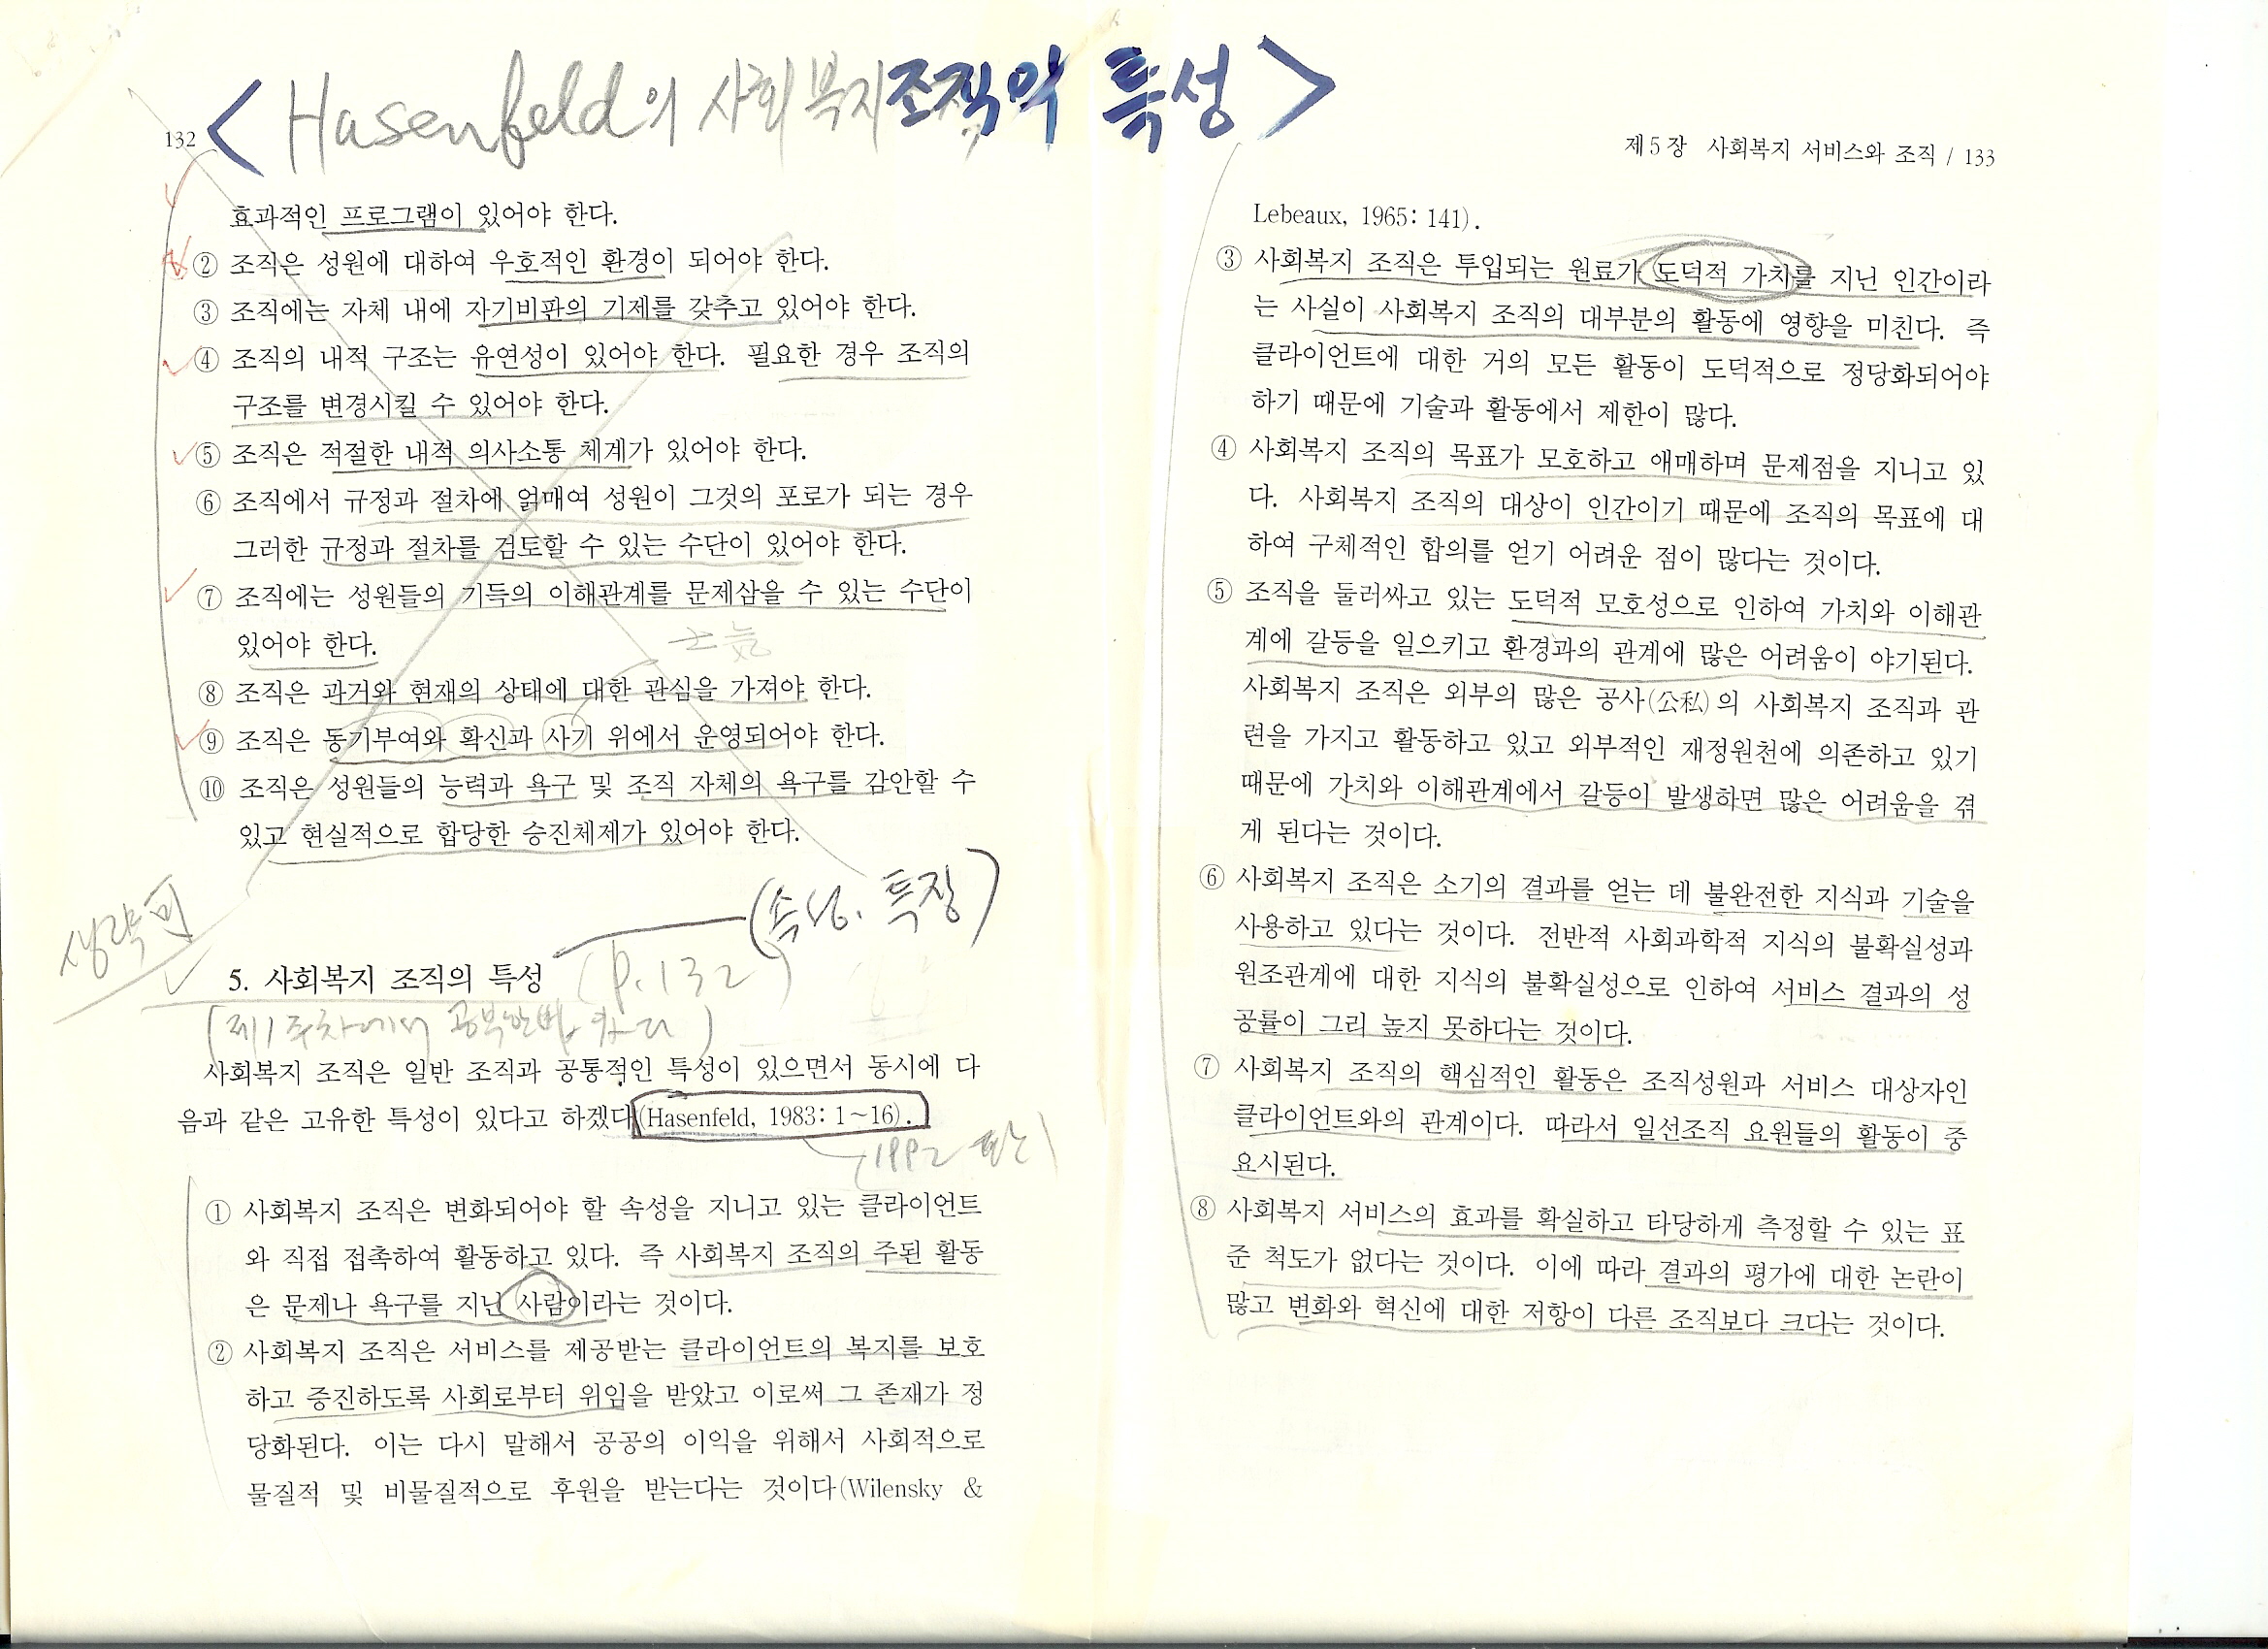 <Hasenfeld의 사회복지조직의 특성>
132
효과적인 프로그램이 있어야 한다.
② 조직은 성원에 대하여 우호적인 환경이 되어야 한다.
③ 조직에는 자체 내에 자기비판의 기제를 갖추고 있어야 한다.
④ 조직의 내적 구조는 유연성이 있어야 한다. 필요한 경우 조직의
구조를 변경시킬 수 있어야 한다.
⑤ 조직은 적절한 내적 의사소통 체계가 있어야 한다.
⑥ 조직에서 규정과 절차에 얽매여 성원이 그것의 포로가 되는 경우
그러한 규정과 절차를 검토할 수 있는 수단이 있어야 한다.
⑦ 조직에는 성원들의 기득의 이해관계를 문제삼을 수 있는 수단이
있어야 한다.
士氣
⑧ 조직은 과거와 현재의 상태에 대한 관심을 가져야 한다.
⑨ 조직은 동기부여와 확신과 사기 위에서 운영되어야 한다.
⑩ 조직은 성원들의 능력과 욕구 및 조직 자체의 욕구를 감안할 수
있고 현실적으로 합당한 승진체제가 있어야 한다.
(속성, 특징)
생략
5. 사회복지 조직의 특성
(p.132)
(제1주차에서 공부한
사회복지 조직은 일반 조직과 공통적인 특성이 있으면서 동시에 다
음과 같은 고유한 특성이 있다고 하겠다(Hasenfeld, 1983: 1~16).
(1992 판)
① 사회복지 조직은 변화되어야 할 속성을 지니고 있는 클라이언트
와 직접 접촉하여 활동하고 있다. 즉 사회복지 조직의 주된 활동
은 문제나 욕구를 지닌 사람이라는 것이다.
② 사회복지 조직은 서비스를 제공받는 클라이언트의 복지를 보호
하고 증진하도록 사회로부터 위임을 받았고 이로써 그 존재가 정
당화된다. 이는 다시 말해서 공공의 이익을 위해서 사회적으로
물질적 및 비물질적으로 후원을 받는다는 것이다(Wilensky &
제5장 사회복지 서비스와 조직 / 133
Lebeaux, 1965: 141).
③ 사회복지 조직은 투입되는 원료가 도덕적 가치를 지닌 인간이라
는 사실이 사회복지 조직의 대부분의 활동에 영향을 미친다. 즉
클라이언트에 대한 거의 모든 활동이 도덕적으로 정당화되어야
하기 때문에 기술과 활동에서 제한이 많다.
④ 사회복지 조직의 목표가 모호하고 애매하며 문제점을 지니고 있
다. 사회복지 조직의 대상이 인간이기 때문에 조직의 목표에 대
하여 구체적인 합의를 얻기 어려운 점이 많다는 것이다.
⑤ 조직을 둘러싸고 있는 도덕적 모호성으로 인하여 가치와 이해관
계에 갈등을 일으키고 환경과의 관계에 많은 어려움이 야기된다.
사회복지 조직은 외부의 많은 공사(公私)의 사회복지 조직과 관
련을 가지고 활동하고 있고 외부적인 재정원천에 의존하고 있기
때문에 가치와 이해관계에서 갈등이 발생하면 많은 어려움을 겪
게 된다는 것이다.
⑥ 사회복지 조직은 소기의 결과를 얻는 데 불완전한 지식과 기술을
사용하고 있다는 것이다. 전반적 사회과학적 지식의 불확실성과
원조관계에 대한 지식의 불확실성으로 인하여 서비스 결과의 성
공률이 그리 높지 못하다는 것이다.
⑦ 사회복지 조직의 핵심적인 활동은 조직성원과 서비스 대상자인
클라이언트와의 관계이다. 따라서 일선조직 요원들의 활동이 중
요시된다.
⑧ 사회복지 서비스의 효과를 확실하고 타당하게 측정할 수 있는 표
준 척도가 없다는 것이다. 이에 따라 결과의 평가에 대한 논란이
많고 변화와 혁신에 대한 저항이 다른 조직보다 크다는 것이다.